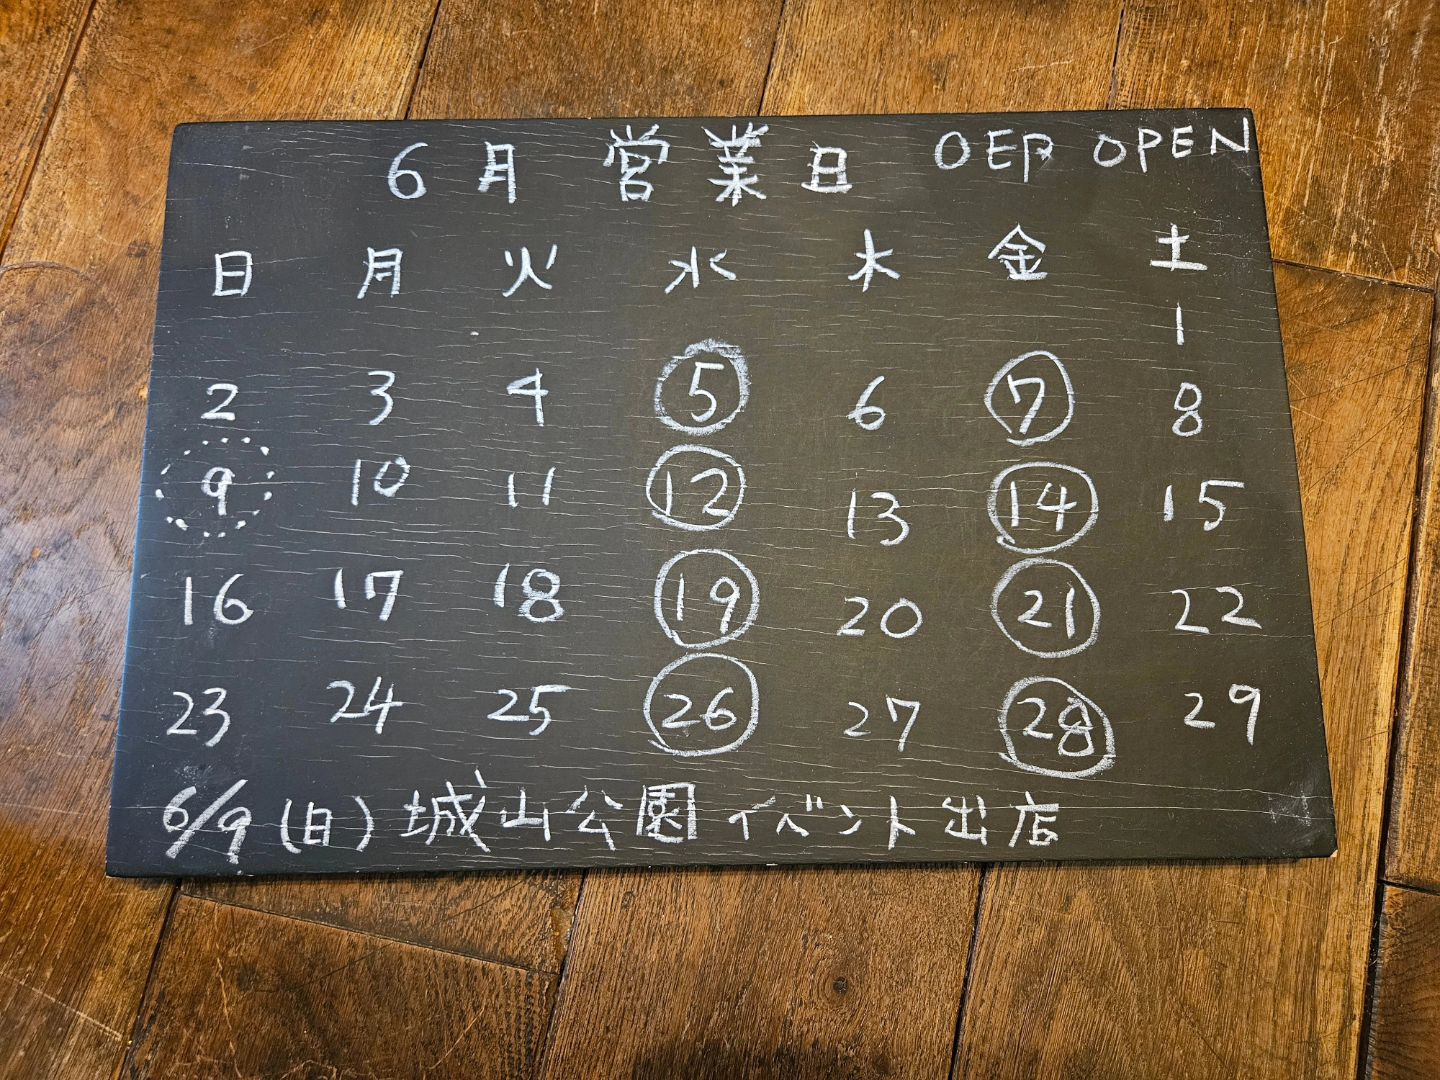 6月 営業日 OEP OPEN
日 月 火 水 木 金 土
1
2 3 4 5 6 7 8
9 10 11 12 13 14 15
16 17 18 19 20 21 22
23 24 25 26 27 28 29
6/9 (日) 城山公園 イベント出店